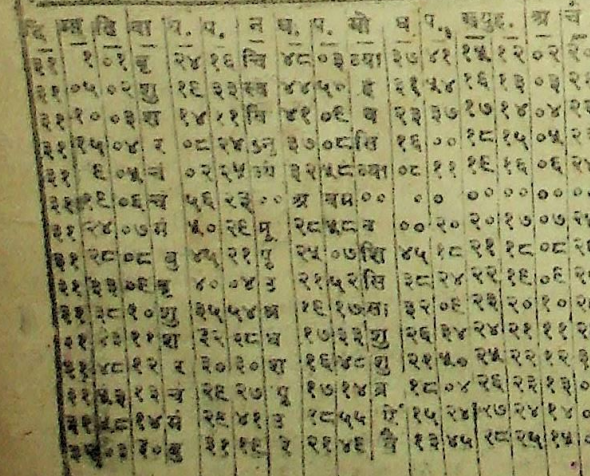 दि मा ति वा घ. प. न घ. प. यो घ प. श्र चं
३१ १ ०१ बृ २४ १६ चि ४८ ०३ व्या ३७ ४१ १५ १२ ०२
३१ ०५ ०२ शु १९ ३३ स्व ४४ ५० ह ३१ ५४ १६ १३ ०३
३१ १० ०३ श १४ वि ४१ ०९ व २३ ३७ १७ १४ ०४
३१ १५ ०४ र ०८ २४ ऽनु ३७ ०८ सि १६ ०० १८ १५ ०५
३१ ९ ०५ चं ०२ २५ ज्ये ३२ ५८ व्या ०८ ११ १९ १६ ०६
३१ १९ ०६ चं ५६ २३ ०० श्र वम ०० ० ० ०० ०० ००
३१ २४ ०७ मं ५० २९ मू २८ ५८ व ०० २० २० १७ ०७
३१ २८ ०८ बु ४५ २१ पू २५ ०७ शि ४५ १८ २१ १८ ०८
३१ ३३ ०९ बृ ४० ०४ उ २१ ५२ सि ३८ २४ २२ १९ ०९
३१ ३८ १० शु ३५ ५४ श्र १९ १७ सा ३२ ०९ २३ २० १०
३१ ११ श ३२ २८ ध १७ ३३ शु २६ ३४ २४ २१ ११
३१ ४८ १२ र ३० ३० श १६ ४८ शु २१ ५० २५ २२ १२
३१ ५३ १३ चं २९ २७ पू १७ १४ ब्र १८ ०४ २६ २३ १३
३१ १४ मं २९ ४१ उ १८ ५५ ऐं १५ २४ २७ २४ १४
३१ ०३ ३० बु ३१ १९ रे २१ ४९ वै १३ ४५ २८ २५ १५